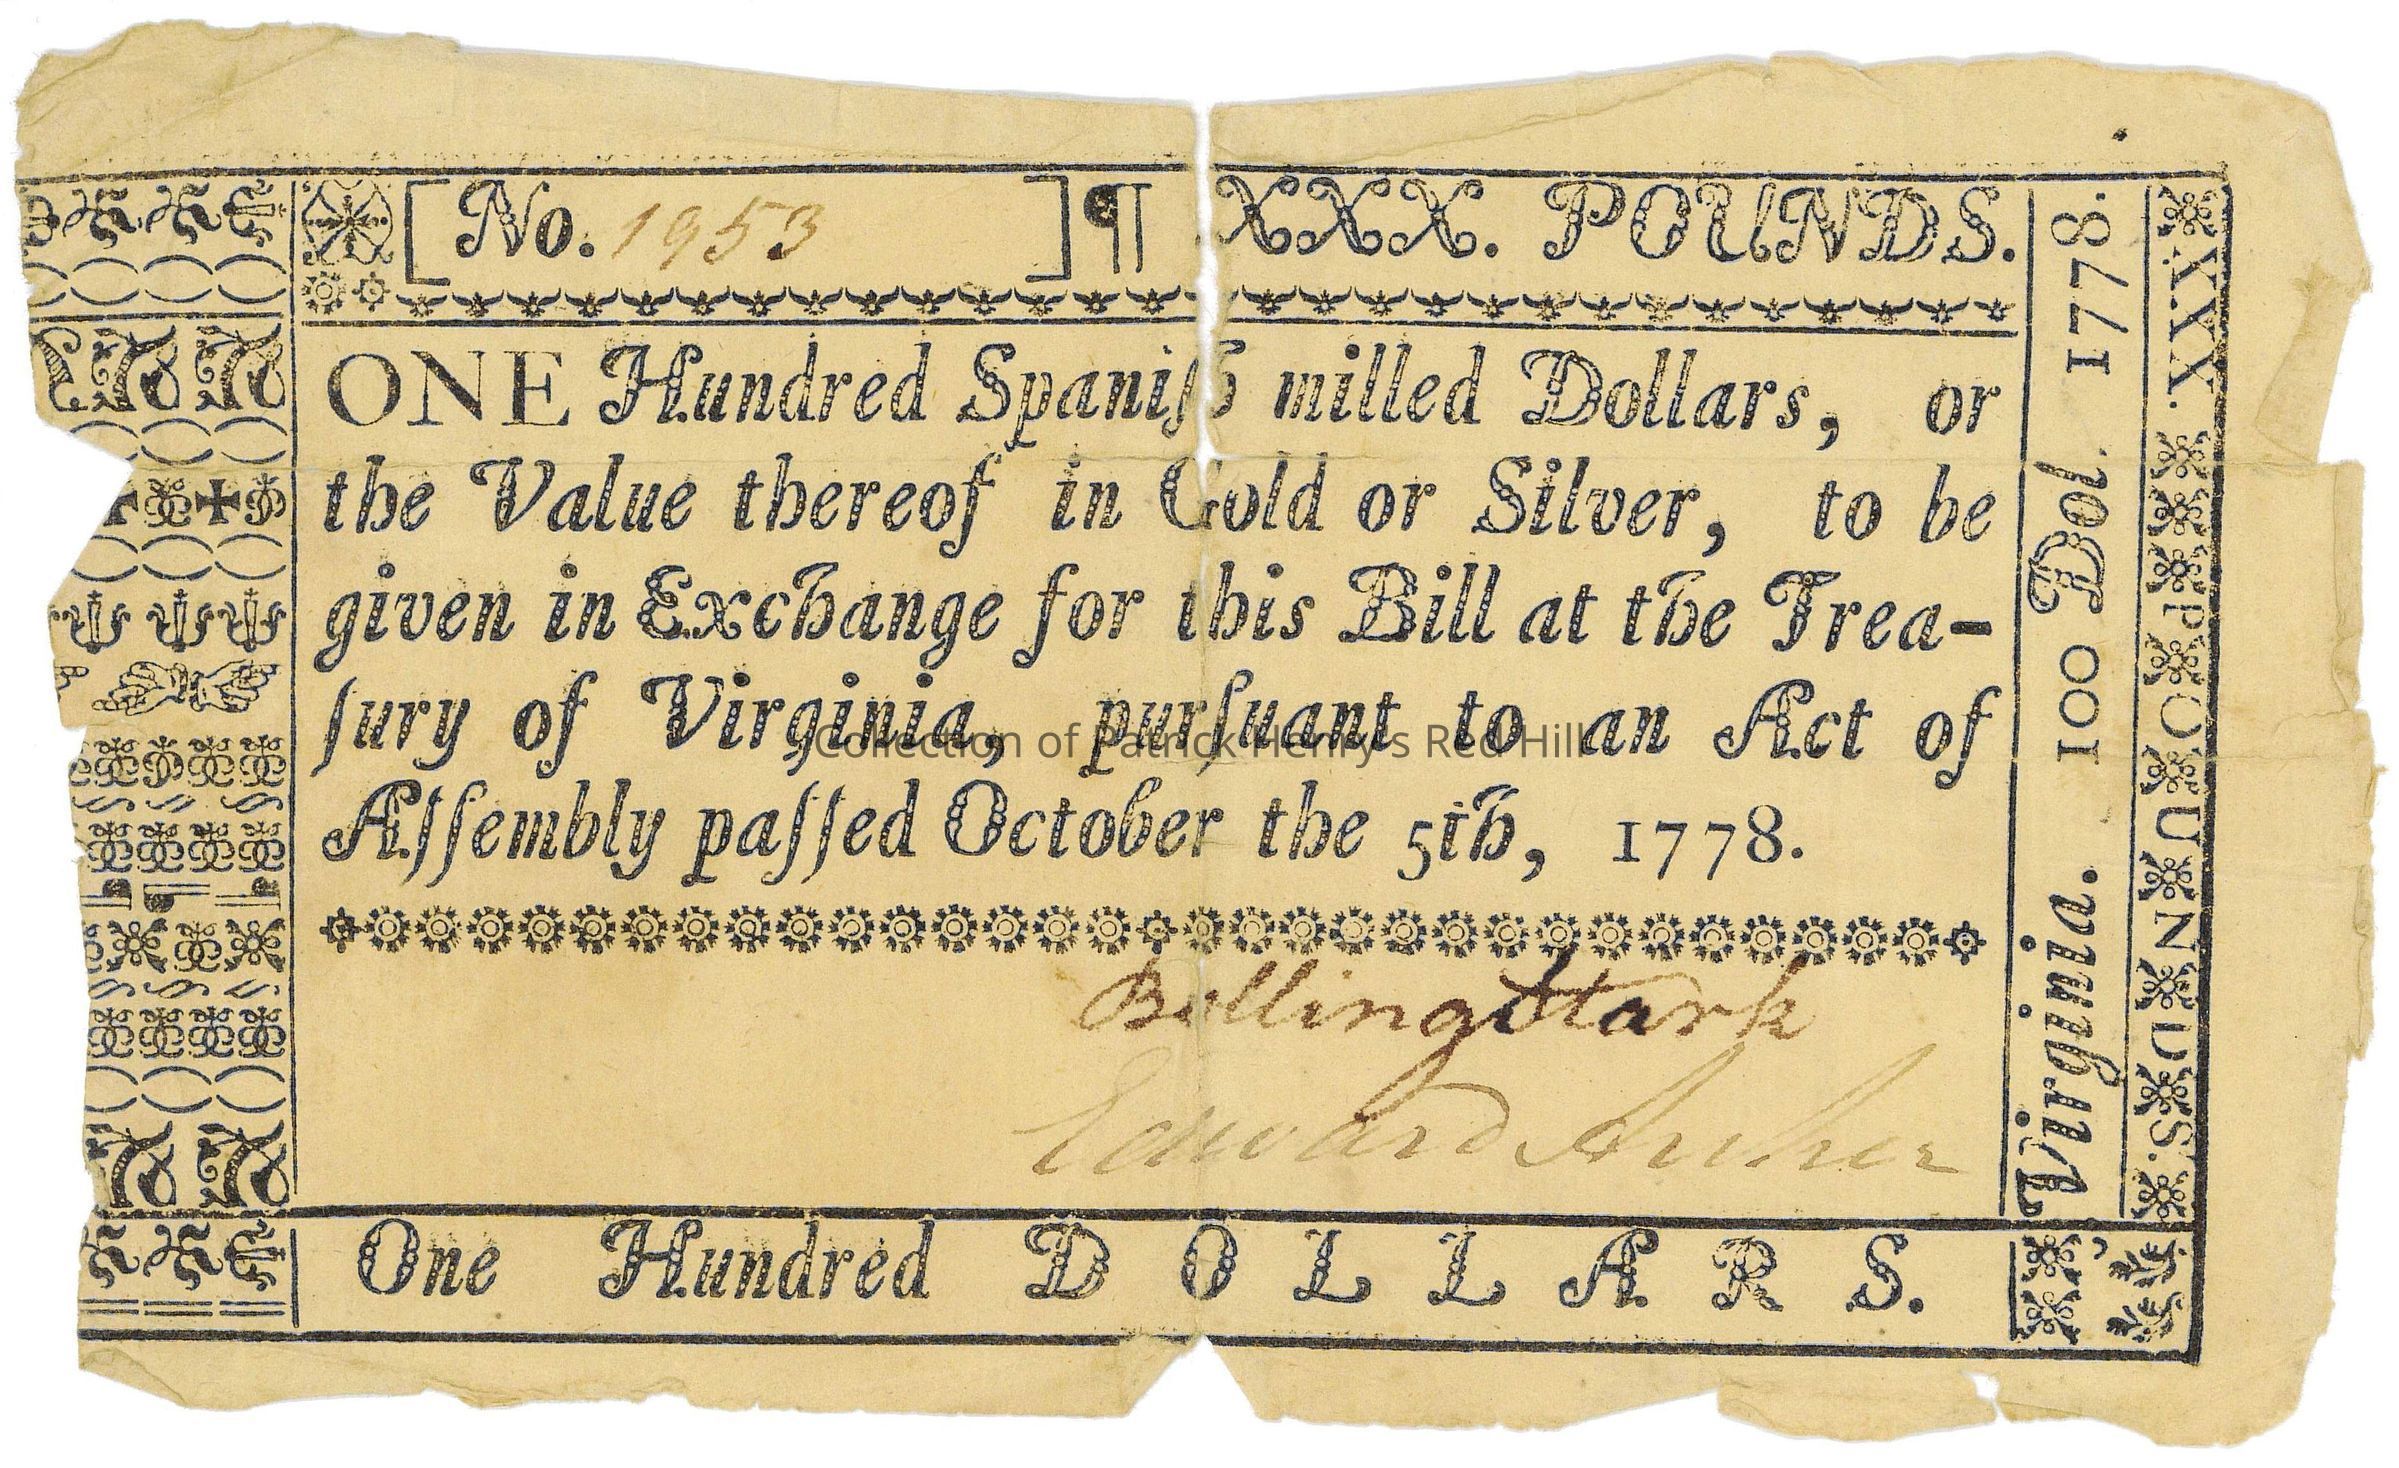 [No. 1953 ]¶ XXX. POUNDS.
ONE Hundred Spaniſh milled Dollars, or
the Value thereof in Gold or Silver, to be
given in Exchange for this Bill at the Trea-
ſury of Virginia, purſuant to an Act of
Aſſembly paſſed October the 5th, 1778.
Bolling Stark
Edward Archer
One Hundred DOLLARS.
Virginia. 100 Dol. 1778.
XXX. POUNDS.
Collection of Patrick Henry's Red Hill